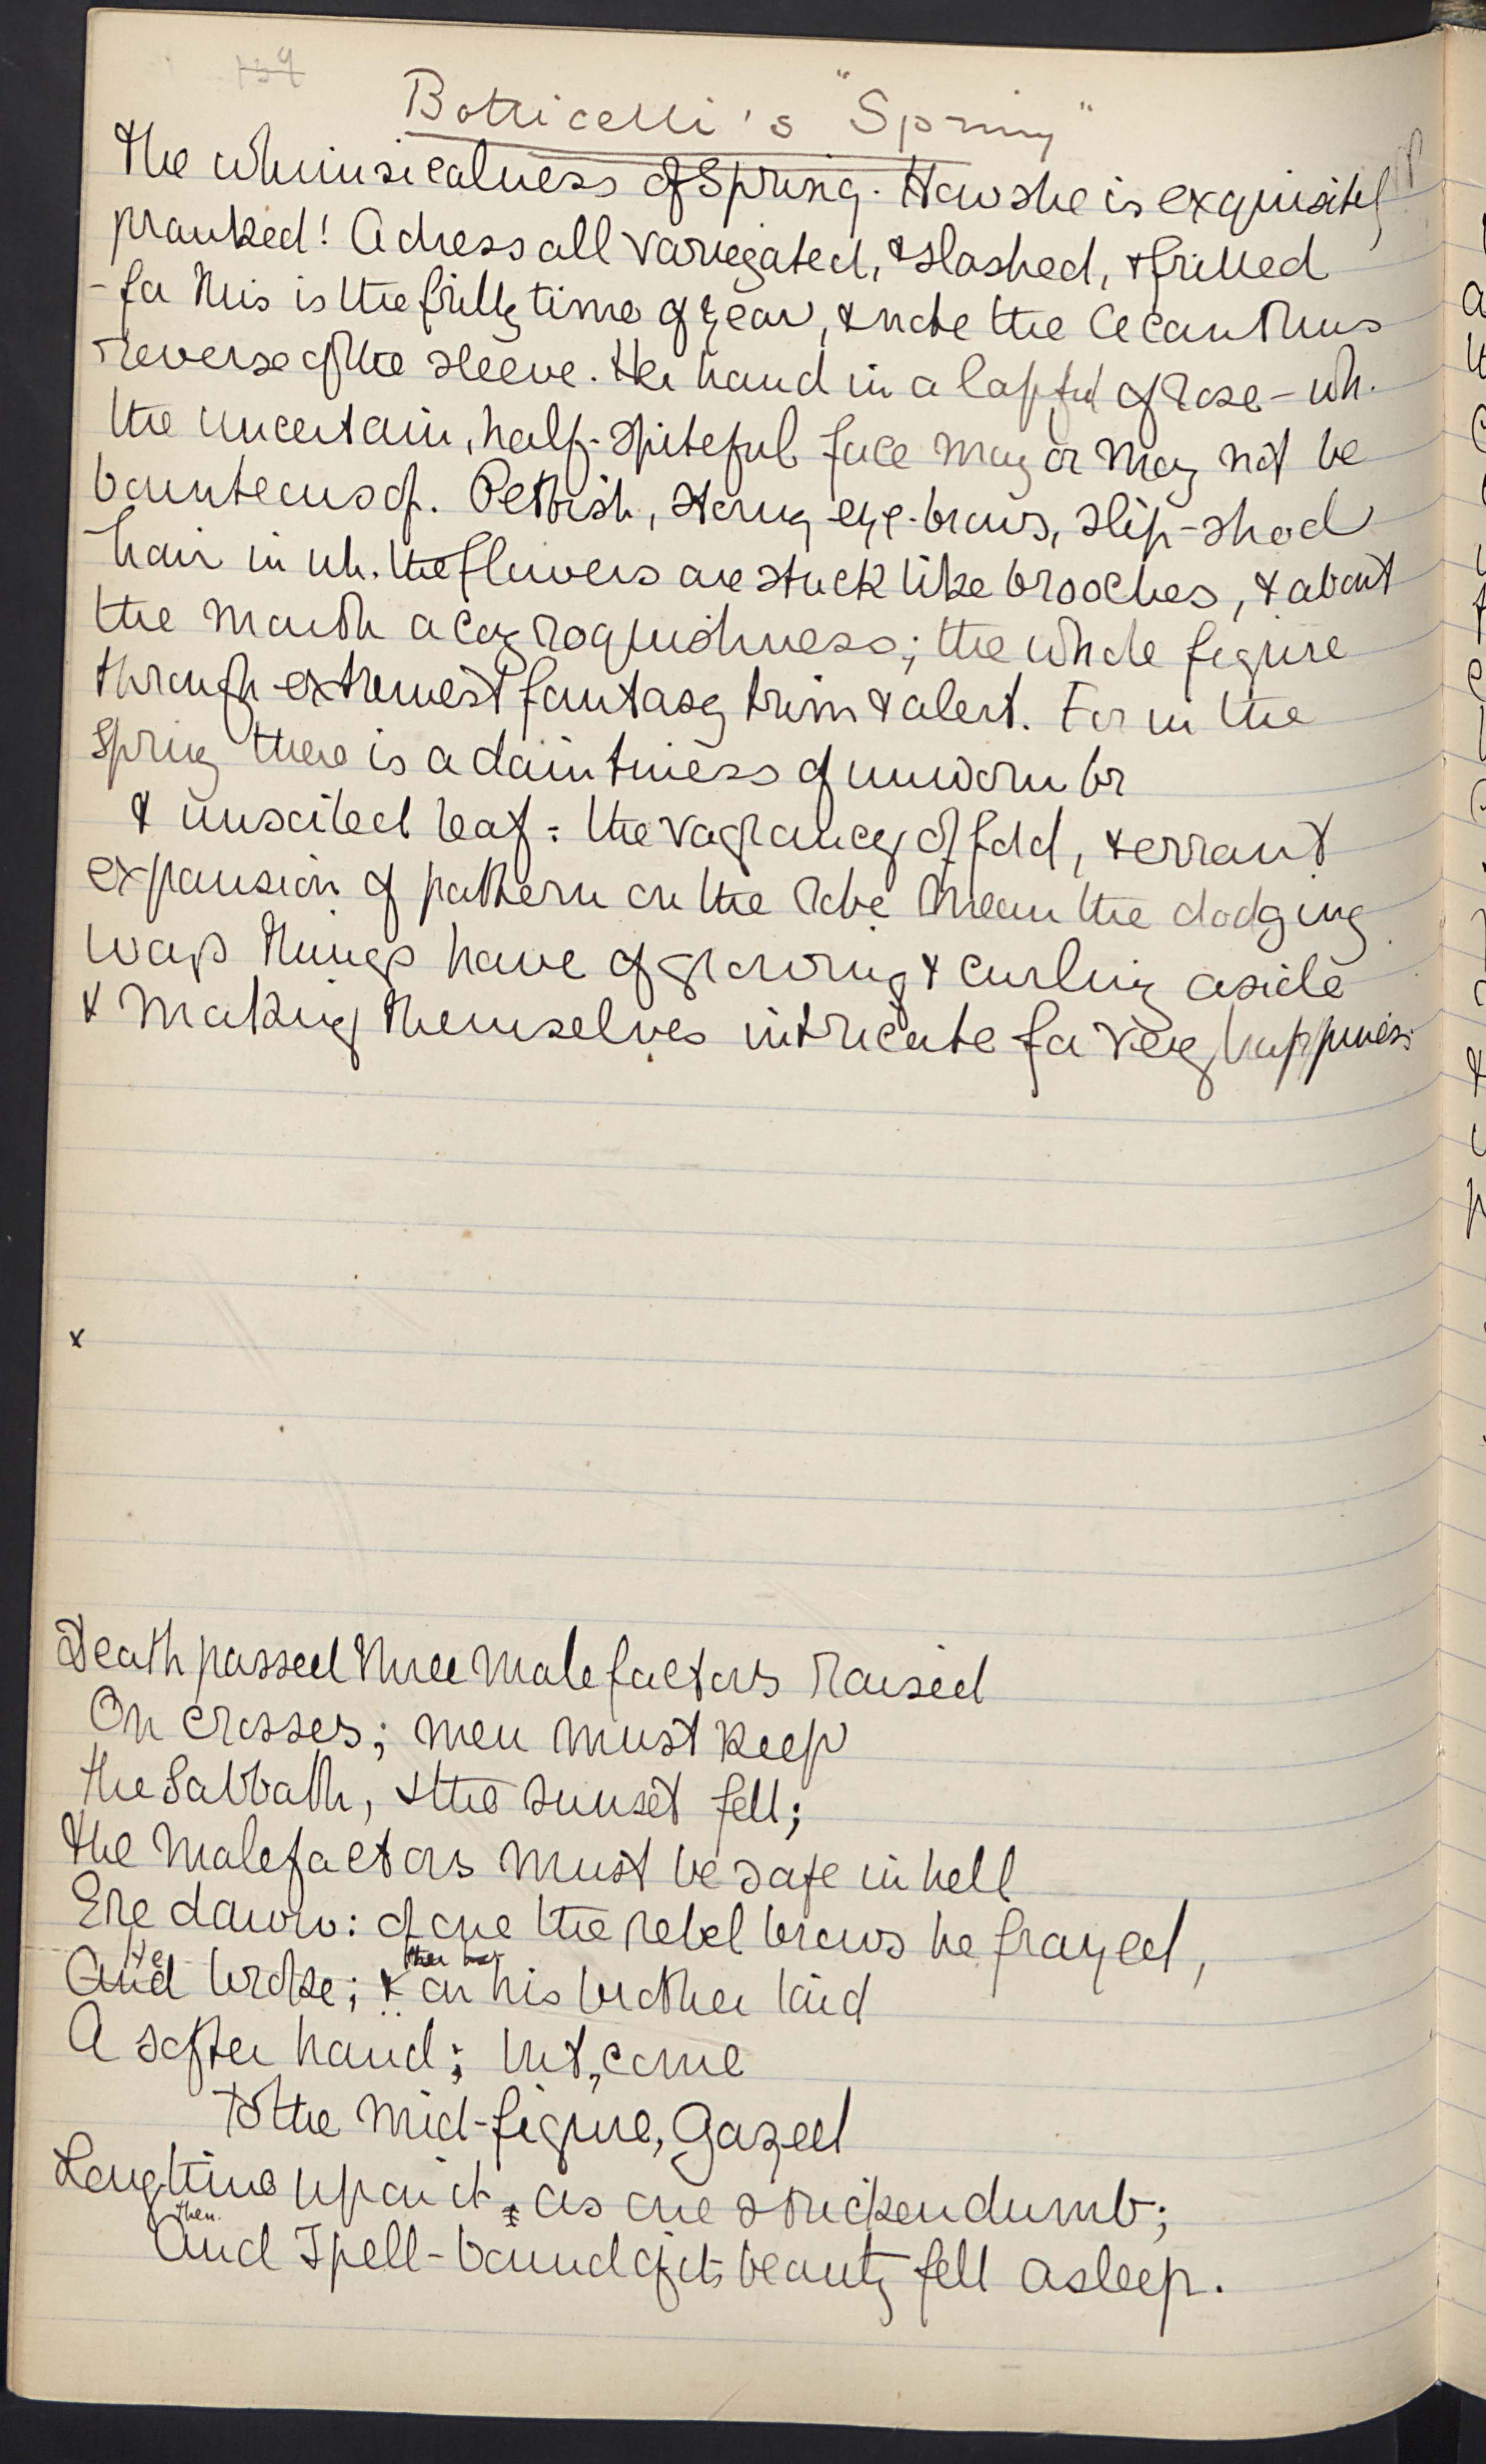 Botticelli's "Spring"
The whimsicalness of Spring. How she is exquisitely
pranked! A dress all variegated, & slashed, & frilled
- for this is the frilly time of year, & note the Acanthus
reverse of the sleeve. Her hand in a lapful of rose - wh.
the uncertain, half-spiteful face may or may not be
bounteous of. Pettish, strong eye-brows, slip-shod
hair in wh. the flowers are stuck like brooches, & about
the mouth a coy roguishness; the whole figure
through extremest fantasy trim & alert. For in the
Spring there is a daintiness of unworn br
& unsoiled leaf: the vagrancy of fold, & errant
expansion of pattern on the robe mean the dodging
ways things have of growing & curling aside
& making themselves intricate for very happiness
x
Death passed three malefactors raised
On crosses; men must keep
The Sabbath, & the sunset fell;
The malefactors must be safe in hell
Ere dawn: of one the rebel brows he frayed,
He
And broke; & on his brother laid
A softer hand; but, come
To the mid-figure, gazed
Long time upon it, as one stricken dumb;
Then
And Spell-bound of its beauty fell asleep.